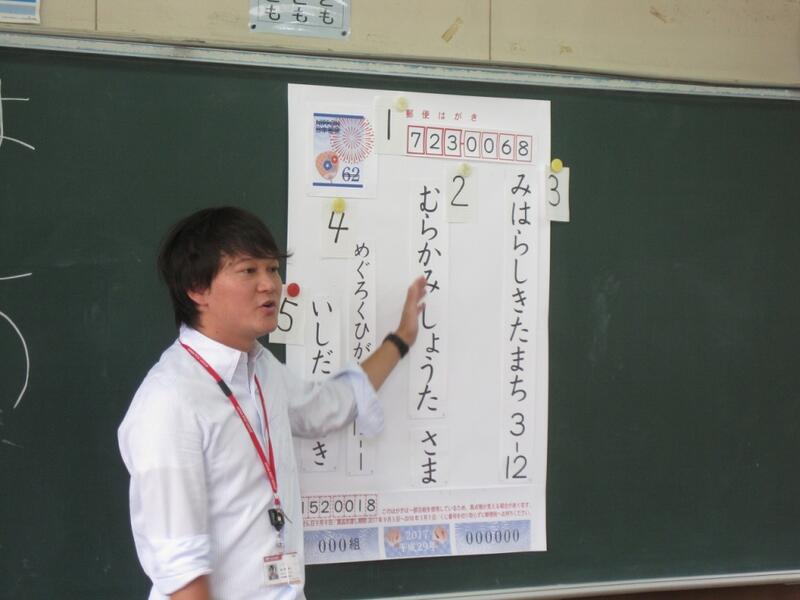 郵便はがき
723-0068
NIPPON
日本郵便
62
1
2
3
4
5
みはらしきたまち 3-12
むらかみ しょうた さま
めぐろくひが
いしだ
き
1520018
2017
平成29年
000組
000000